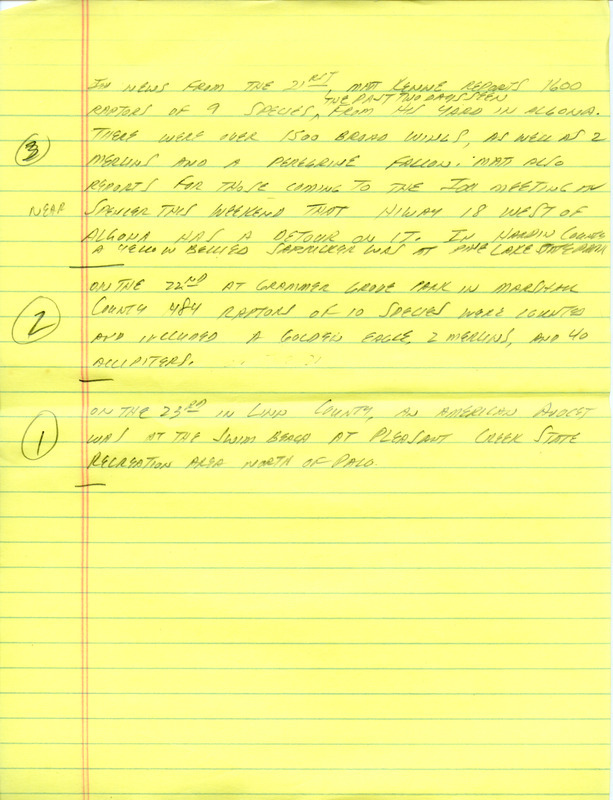 IOU NEWS FROM THE 21ST, MATT KENNE REPORTS 1600
THE PAST TWO DAYS SEEN
RAPTORS OF 9 SPECIES, FROM HIS YARD IN ALGONA.
THERE WERE OVER 1500 BROAD WINGS, AS WELL AS 2
3
MERLINS AND A PEREGRINE FALCON. MATT ALSO
REPORTS FOR THOSE COMING TO THE IOU MEETING IN
NEAR SPENCER THIS WEEKEND THAT HIWAY 18 WEST OF
ALGONA HAS A DETOUR ON IT. IN HARDIN COUNTY
A YELLOW BELLIED SAPSUCKER WAS AT PINE LAKE STATE PARK
ON THE 22ND AT GRAMMER GROVE PARK IN MARSHALL
2
COUNTY 484 RAPTORS OF 10 SPECIES WERE COUNTED
AND INCLUDED A GOLDEN EAGLE, 2 MERLINS, AND 40
ACCIPITERS.
ON THE 23RD IN LINN COUNTY, AN AMERICAN AVOCET
1
WAS AT THE SWIM BEACH AT PLEASANT CREEK STATE
RECREATION AREA NORTH OF PALO.